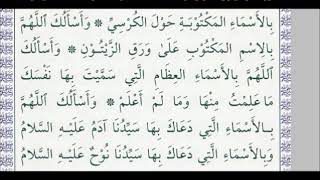 بِالْأَسْمَاءِ الْمَكْتُوبَةِ حَوْلَ الْكُرْسِيِّ ۞ وَأَسْأَلُكَ اللَّهُمَّ
بِالْاِسْمِ الْمَكْتُوْبِ عَلَى وَرَقِ الزَّيْتُــوْنِ ۞ وَأَسْأَلُكَ
اللَّهُمَّ بِالْأَسْمَاءِ الْعِظَامِ الَّتِي سَمَّيْتَ بِهَا نَفْسَكَ
مَا عَلِمْتُ مِنْهَا وَمَا لَمْ أَعْلَمْ ۞ وَأَسْأَلُكَ اللَّهُمَّ
بِالْأَسْمَاءِ الَّتِي دَعَاكَ بِهَا سَيِّدُنَا آدَمُ عَلَيْهِ السَّلَامُ
وَبِالْأَسْمَاءِ الَّتِي دَعَاكَ بِهَا سَيِّدُنَا نُوْحٌ عَلَيْهِ السَّلَامُ